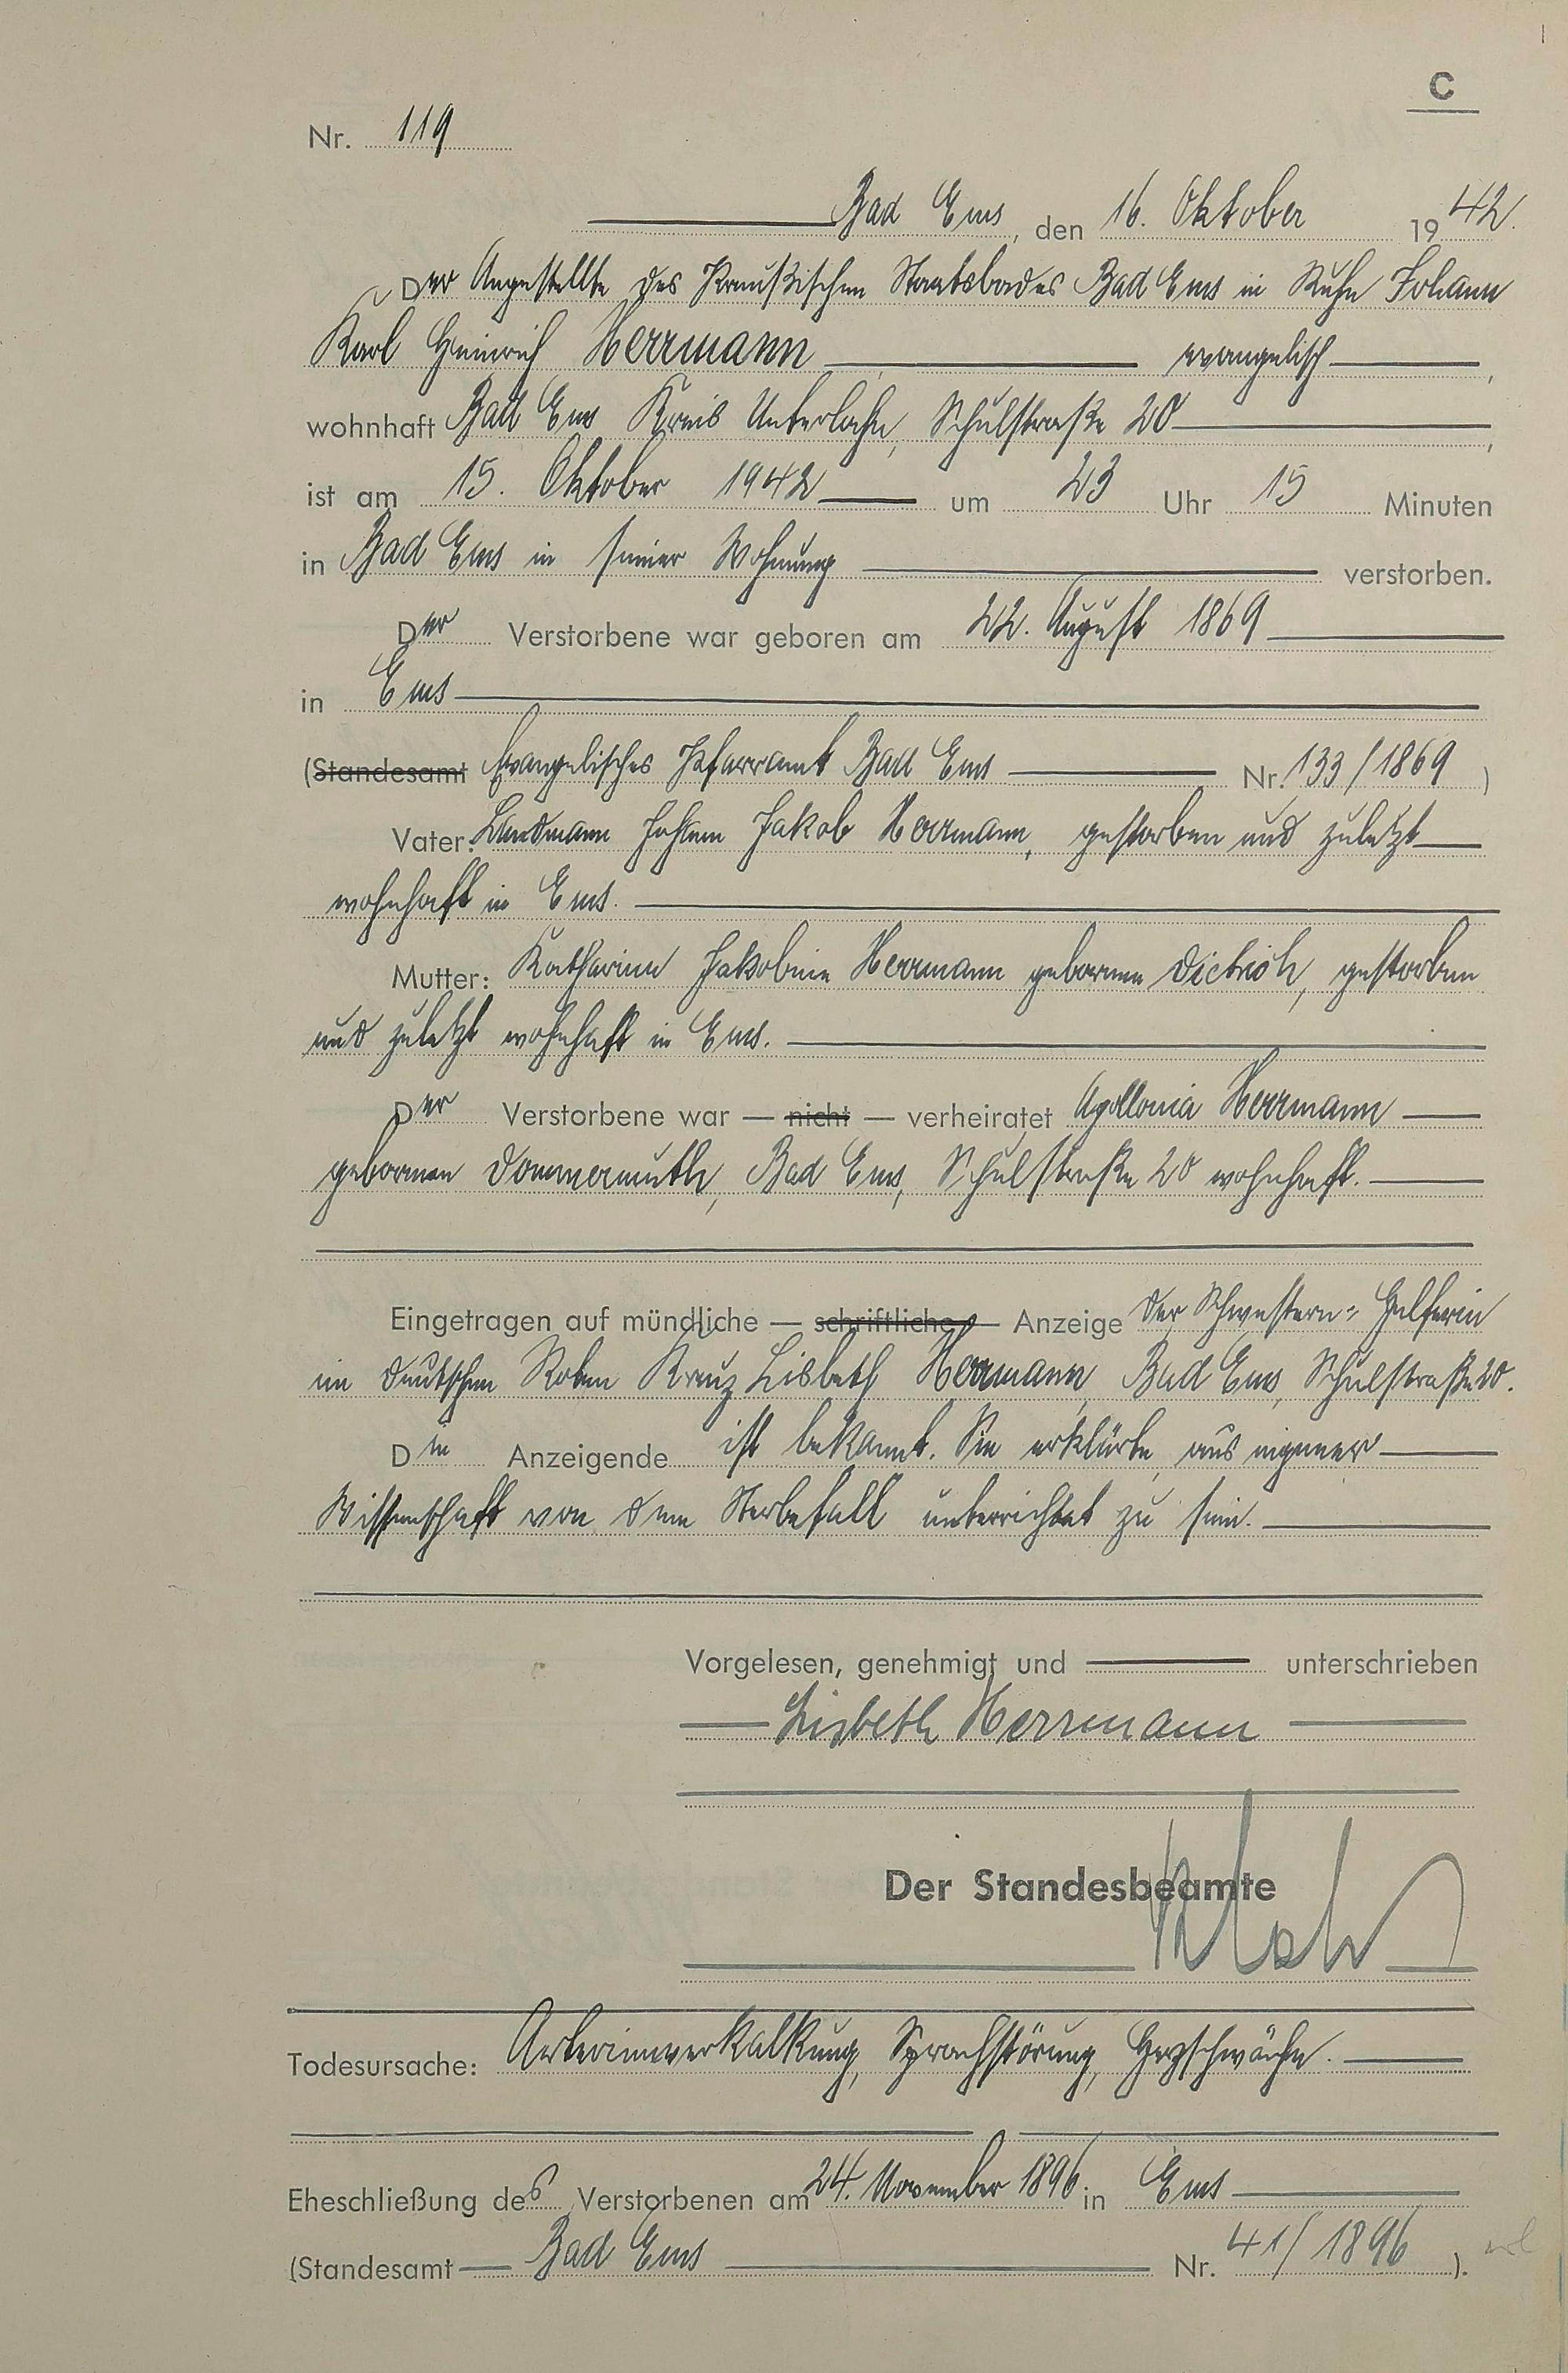 C
Nr. 119
Bad Ems, den 16. Oktober 1942.
Der Angestellte des Preußischen Staatsbades Bad Ems in Ruhe Johann
Karl Heinrich Herrmann evangelisch,
wohnhaft Bad Ems Kreis Unterlahn, Schulstraße 20,
ist am 15. Oktober 1942 um 23 Uhr 15 Minuten
in Bad Ems in seiner Wohnung verstorben.
Der Verstorbene war geboren am 22. August 1869
in Ems
(Standesamt Evangelisches Pfarramt Bad Ems Nr. 133/1869)
Vater: Landmann Johann Jakob Herrmann, gestorben und zuletzt
wohnhaft in Ems.
Mutter: Katharine Jakobine Herrmann geborene Dietrich, gestorben
und zuletzt wohnhaft in Ems.
Der Verstorbene war — nicht — verheiratet Apollonia Herrmann
geborenen Dommermuth, Bad Ems, Schulstraße 20 wohnhaft.
Eingetragen auf mündliche — schriftliche — Anzeige der Schwestern-Helferin
im Deutschen Roten Kreuz Lisbeth Herrmann, Bad Ems, Schulstraße 20.
Die Anzeigende ist bekannt. Sie erklärte, aus eigener
Wissenschaft von dem Sterbefall unterrichtet zu sein.
Vorgelesen, genehmigt und unterschrieben
Lisbeth Herrmann
Der Standesbeamte
Todesursache: Arterienverkalkung, Sprachstörung, Herzschwäche.
Eheschließung des Verstorbenen am 24. November 1896 in Ems
(Standesamt Bad Ems Nr. 41/1896).